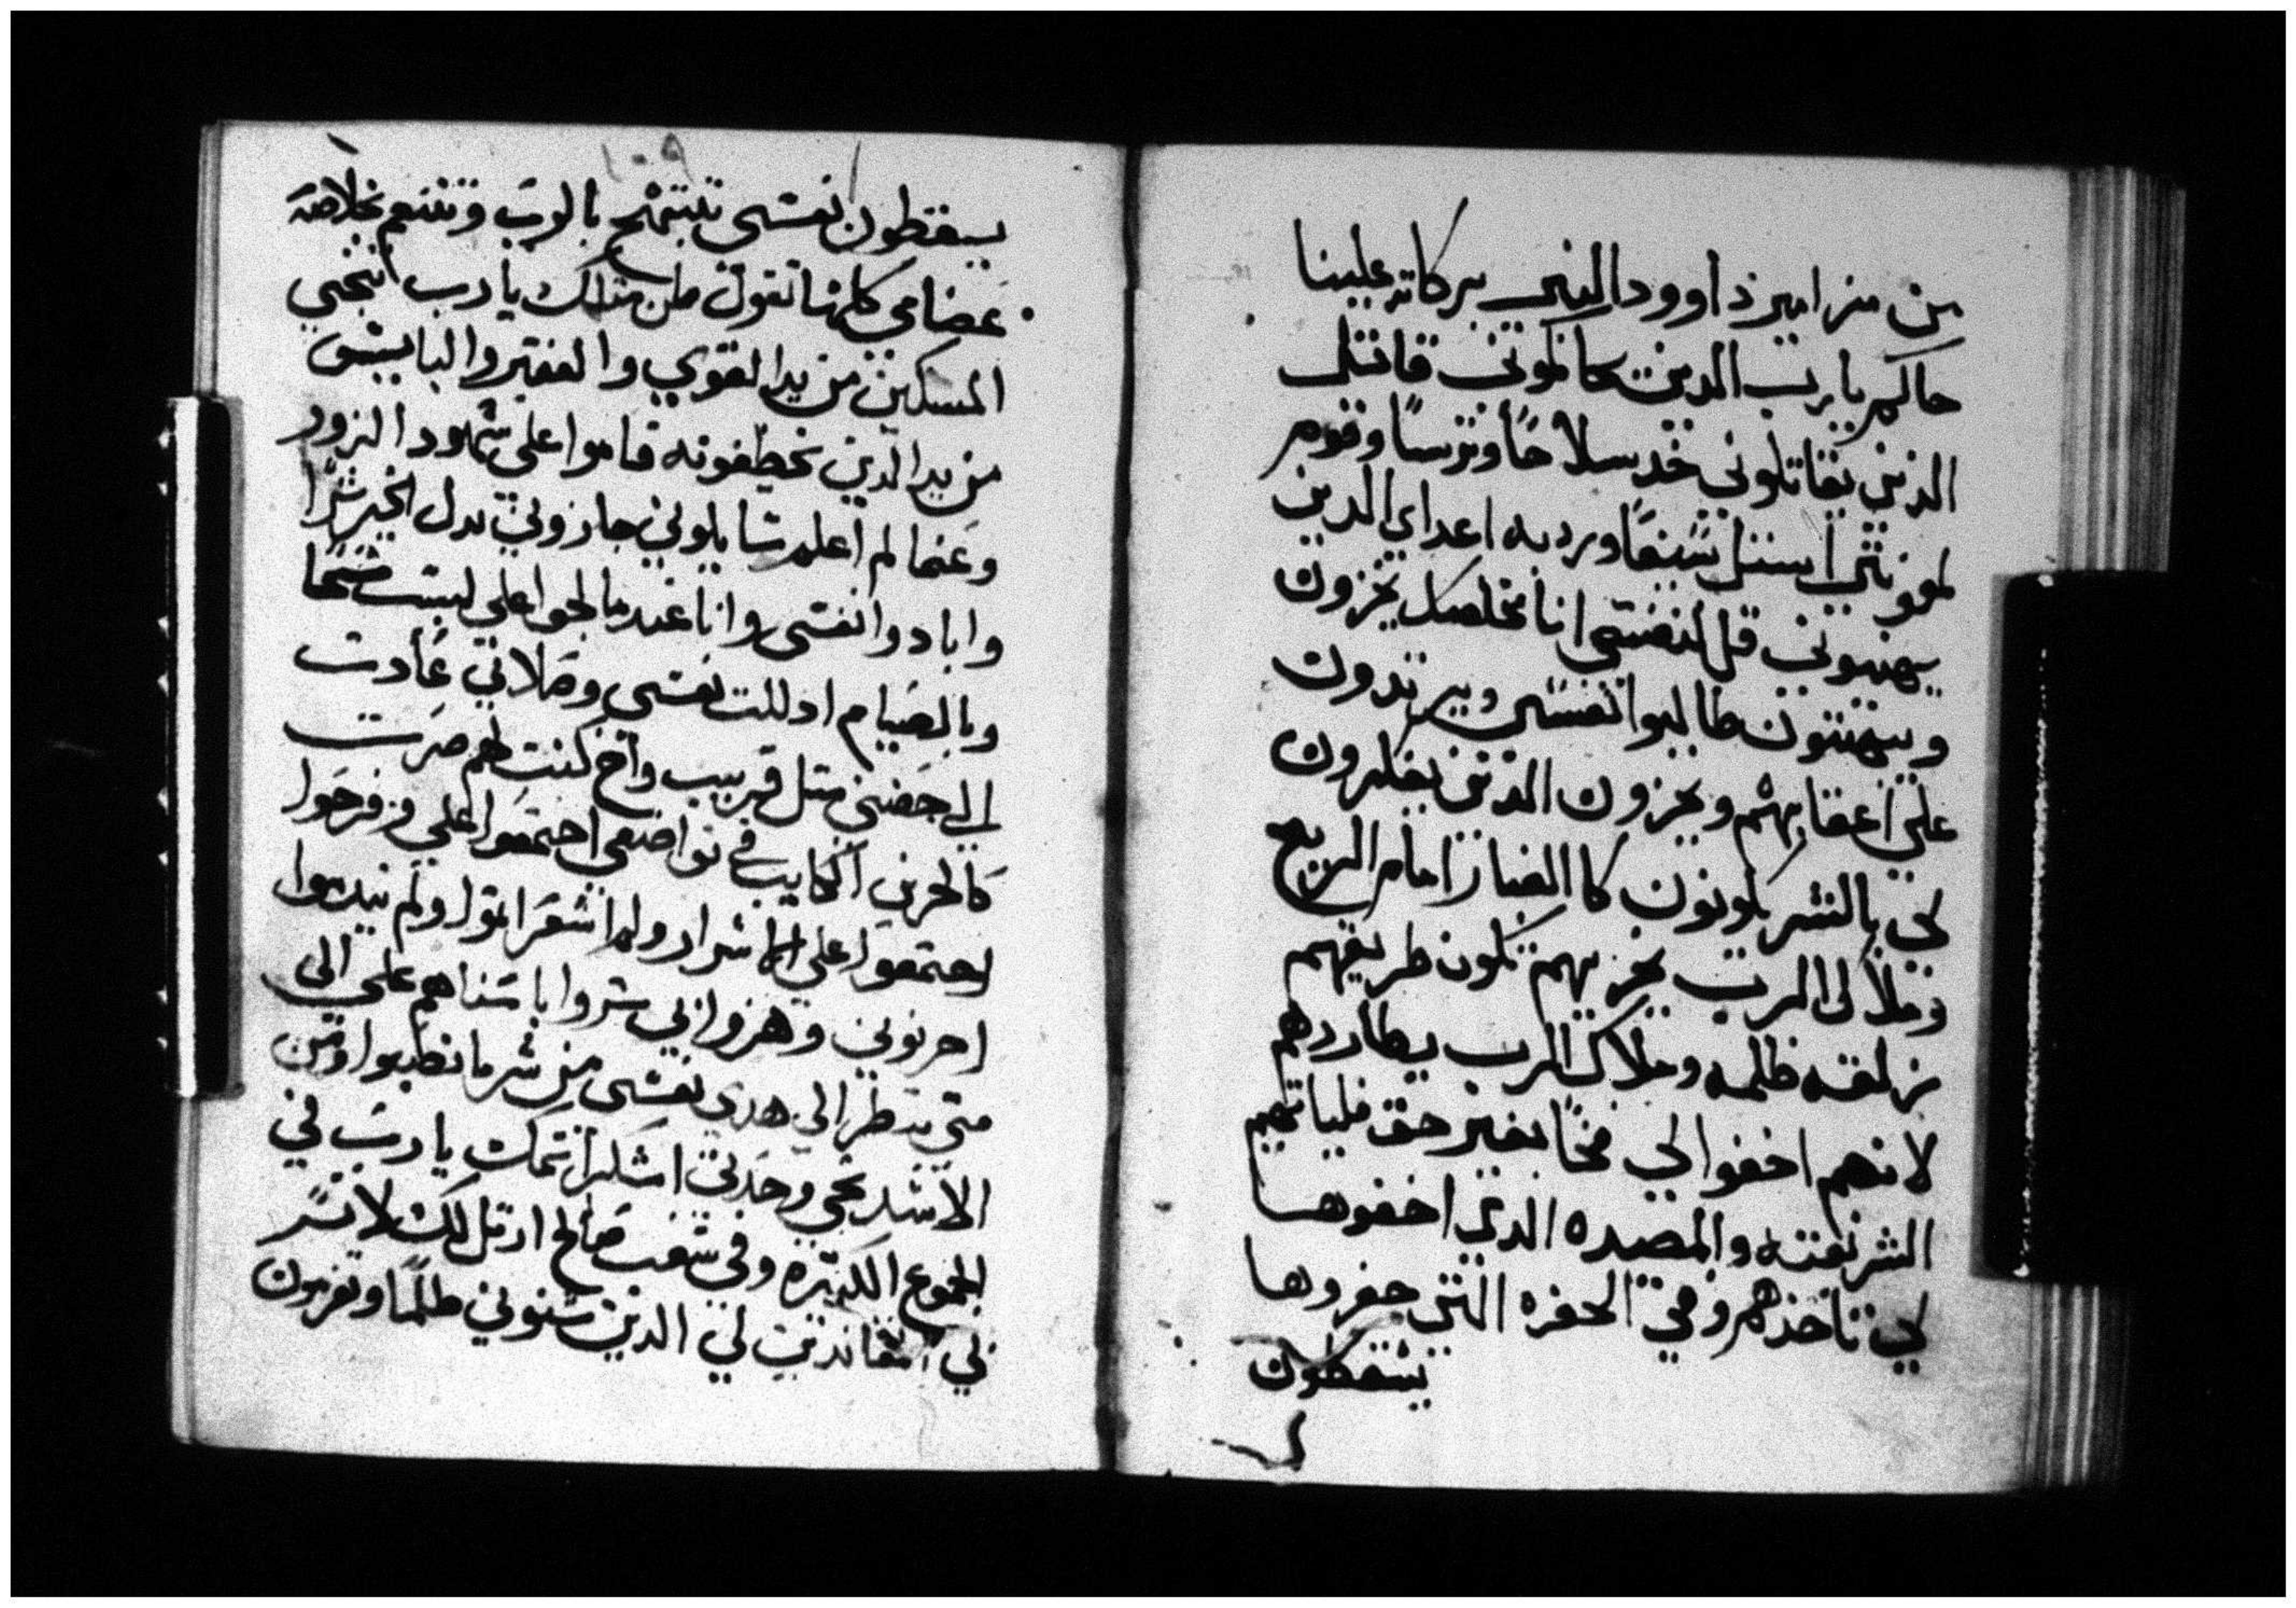 من مزامير داوود النبي بركاته علينا
حاكم يا رب الدين حاكموني قاتل
الذين يقاتلوني خد سلاحًا وترسًا وقوم
لمعونتي استل سيفًا ورد به اعداي الدين
يهينوني قل لنفسي انا مخلصك يخزون
ويبهتون طالبوا نفسي ويرتدون
على اعقابهم ويخزون الذين يفكرون
لي بالشر يكونون كا الغبار امام الريح
وملاك الرب يحزيهم تكون طريقهم
زلقه ظلمه وملاك الرب يطاردهم
لانهم اخفوا لي فخًا بغير حق فلياتهم
الشر بغته والمصيده الدي اخفوها
لي تاخذهم وفي الحفره التي حفروها
يسقطون
١٠٩
يسقطون نفسي تبتهج بالرب وتنعم بخلاصه
عضامي كلها تقول من متلك يا رب انجي
المسكين من يد القوي والفقير والبايس
من يد الدين يخطفونه قاموا علي شهود الزور
وعما لم اعلم سايلوني جازوني بدل الخير شرًا
وابادوا نفسي وانا عندما لجوا علي لبست مسحا
وبالصيام اذللت نفسي وصلاتي عادت
الى حضني متل قريب واخ كنت لهم صرت
كالحزين الكايب في تواضعي اجتمعوا علي وفرحوا
اجتمعوا علي الاشرار ولم اشعر انموا ولم يندموا
احزنوني وهزوا بي سروا باسناهم علي الى
متى تنظر الي هدي نفسي من شر ما نصبوا ومن
الاسد نجي وحدتي اشكرا سمك يا رب في
الجموع الكتيره وفي شعب صالح ارتل لك لا تسر
بي المعاندين لي الدين شنوني ظلمًا وتغمزون